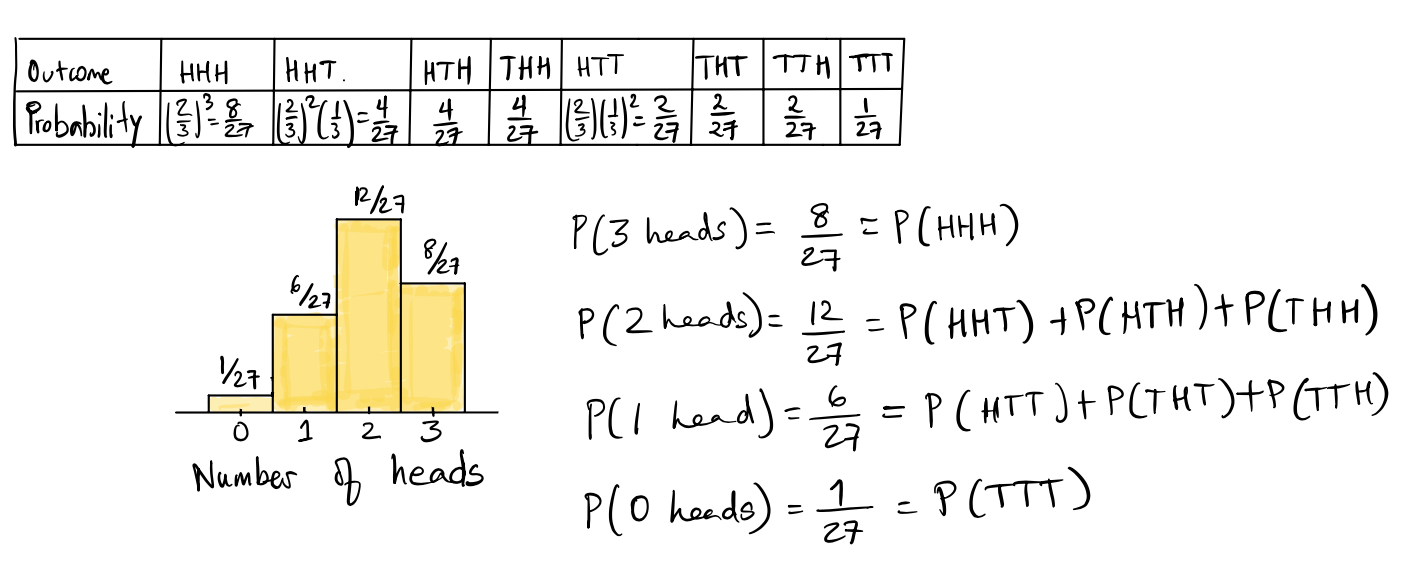 Outcome HHH HHT. HTH THH HTT THT TTH TTT
Probability (2/3)³=8/27 (2/3)²(1/3)=4/27 4/27 4/27 (2/3)(1/3)²=2/27 2/27 2/27 1/27
12/27
8/27
6/27
1/27
0 1 2 3
Number of heads
P(3 heads)= 8/27 = P(HHH)
P(2 heads)= 12/27 = P(HHT) +P(HTH)+P(THH)
P(1 head)= 6/27 = P(HTT)+P(THT)+P(TTH)
P(0 heads) = 1/27 = P(TTT)